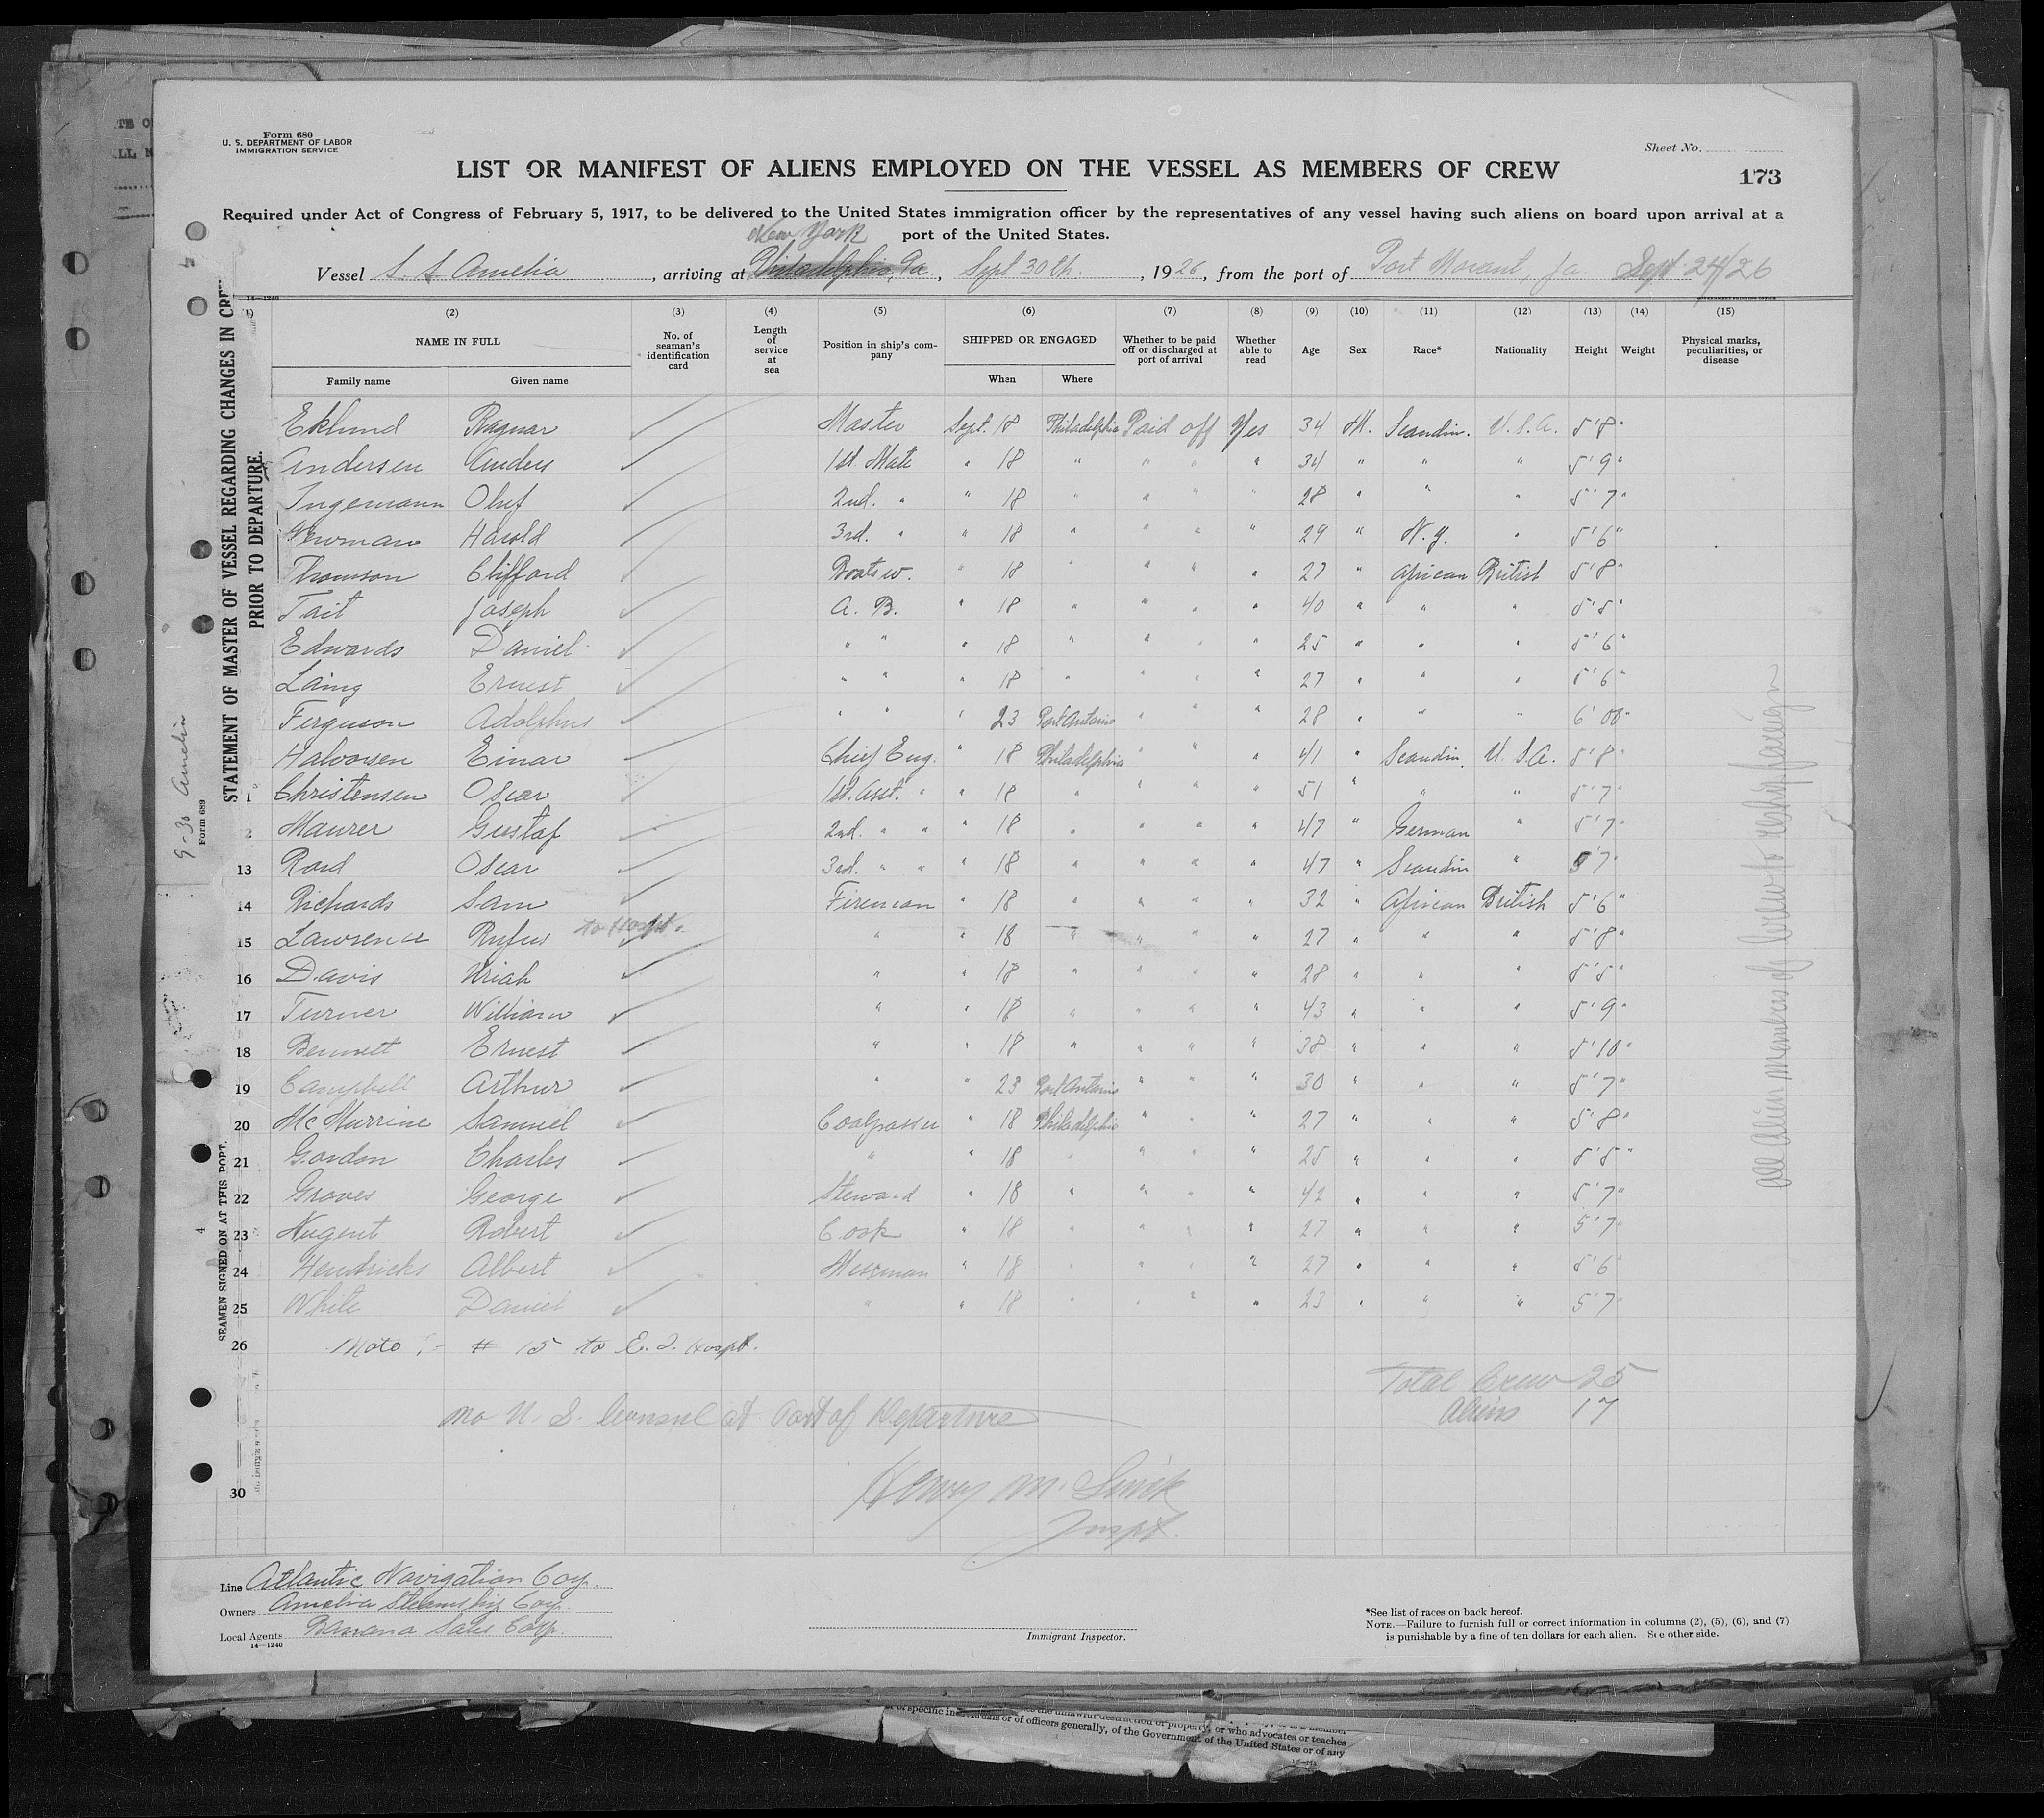 Form 680
U. S. DEPARTMENT OF LABOR
IMMIGRATION SERVICE
Sheet No.
LIST OR MANIFEST OF ALIENS EMPLOYED ON THE VESSEL AS MEMBERS OF CREW
173
Required under Act of Congress of February 5, 1917, to be delivered to the United States immigration officer by the representatives of any vessel having such aliens on board upon arrival at a
port of the United States.
New York
Vessel S. S. Amelia, arriving at Philadelphia, Pa., Sept 30th., 1926, from the port of Port Morant, Ja. Sept. 24/26
14—1240 GOVERNMENT PRINTING OFFICE
(1) (2) (3) (4) (5) (6) (7) (8) (9) (10) (11) (12) (13) (14) (15)
NAME IN FULL No. of seaman's identification card Length of service at sea Position in ship's company SHIPPED OR ENGAGED Whether to be paid off or discharged at port of arrival Whether able to read Age Sex Race* Nationality Height Weight Physical marks, peculiarities, or disease
Family name Given name When Where
Eklund Ragnar Master Sept. 18 Philadelphia Paid off Yes 34 M. Scandin. U.S.A. 5'8"
Andersen Anders 1st. Mate " 18 " " " " 34 " " " 5'9"
Ingemann Oluf 2nd. " " 18 " " " " 28 " " " 5'7"
Newman Harold 3rd. " " 18 " " " " 29 " N.Y. " 5'6"
Thomson Clifford Boatsw. " 18 " " " " 27 " African British 5'8"
Tait Joseph A. B. " 18 " " " " 40 " " " 5'5"
Edwards Daniel " " " 18 " " " " 25 " " " 5'6"
Laing Ernest " " " 18 " " " " 27 " " " 5'6"
Ferguson Adolphus " " " 23 Port Antonio " " " 28 " " " 6'00"
Halvorsen Einar Chief Eng. " 18 Philadelphia " " " 41 " Scandin. U.S.A. 5'8"
1 Christensen Oscar 1st. Asst. " " 18 " " " " 51 " " " 5'7"
2 Maurer Gustaf 2nd. " " " 18 " " " " 47 " German " 5'7"
13 Roed Oscar 3rd. " " " 18 " " " " 47 " Scandin " 5'7"
14 Richards Sam Fireman " 18 " " " " 32 " African British 5'6"
15 Lawrence Rufus to Hospt. " " 18 " " " " 27 " " " 5'8"
16 Davis Uriah " " 18 " " " " 28 " " " 5'5"
17 Turner William " " 18 " " " " 43 " " " 5'9"
18 Bennett Ernest " " 18 " " " " 38 " " " 5'10"
19 Campbell Arthur " " 23 Port Antonio " " " 30 " " " 5'7"
20 McMurrine Samuel Coalpasser " 18 Philadelphia " " " 27 " " " 5'8"
21 Gordon Charles " " 18 " " " " 25 " " " 5'5"
22 Groves George Steward " 18 " " " " 42 " " " 5'7"
23 Nugent Robert Cook " 18 " " " " 27 " " " 5'7"
24 Hendricks Albert Messman " 18 " " " " 27 " " " 5'6"
25 White Daniel " " 18 " " " " 23 " " " 5'7"
26 Note :- # 15 to E. I. Hospt.
Total Crew 25
Aliens 17
No U. S. Consul at Port of Departure
Henry M.
Inspt.
30
Line Atlantic Navigation Corp.
Owners Amelia Steamship Corp.
Local Agents Banana Sales Corp.
14—1240
Immigrant Inspector.
*See list of races on back hereof.
NOTE.—Failure to furnish full or correct information in columns (2), (5), (6), and (7)
is punishable by a fine of ten dollars for each alien. See other side.
All alien members of crew to reship foreign
STATEMENT OF MASTER OF VESSEL REGARDING CHANGES IN CRE
PRIOR TO DEPARTURE.
9-30 Amelia
Form 689
SEAMEN SIGNED ON AT THIS PORT.
4
of specific individuals or of officers generally, of the Government of the United States or of any
the unlawful destruction of property, or who advocates or teaches